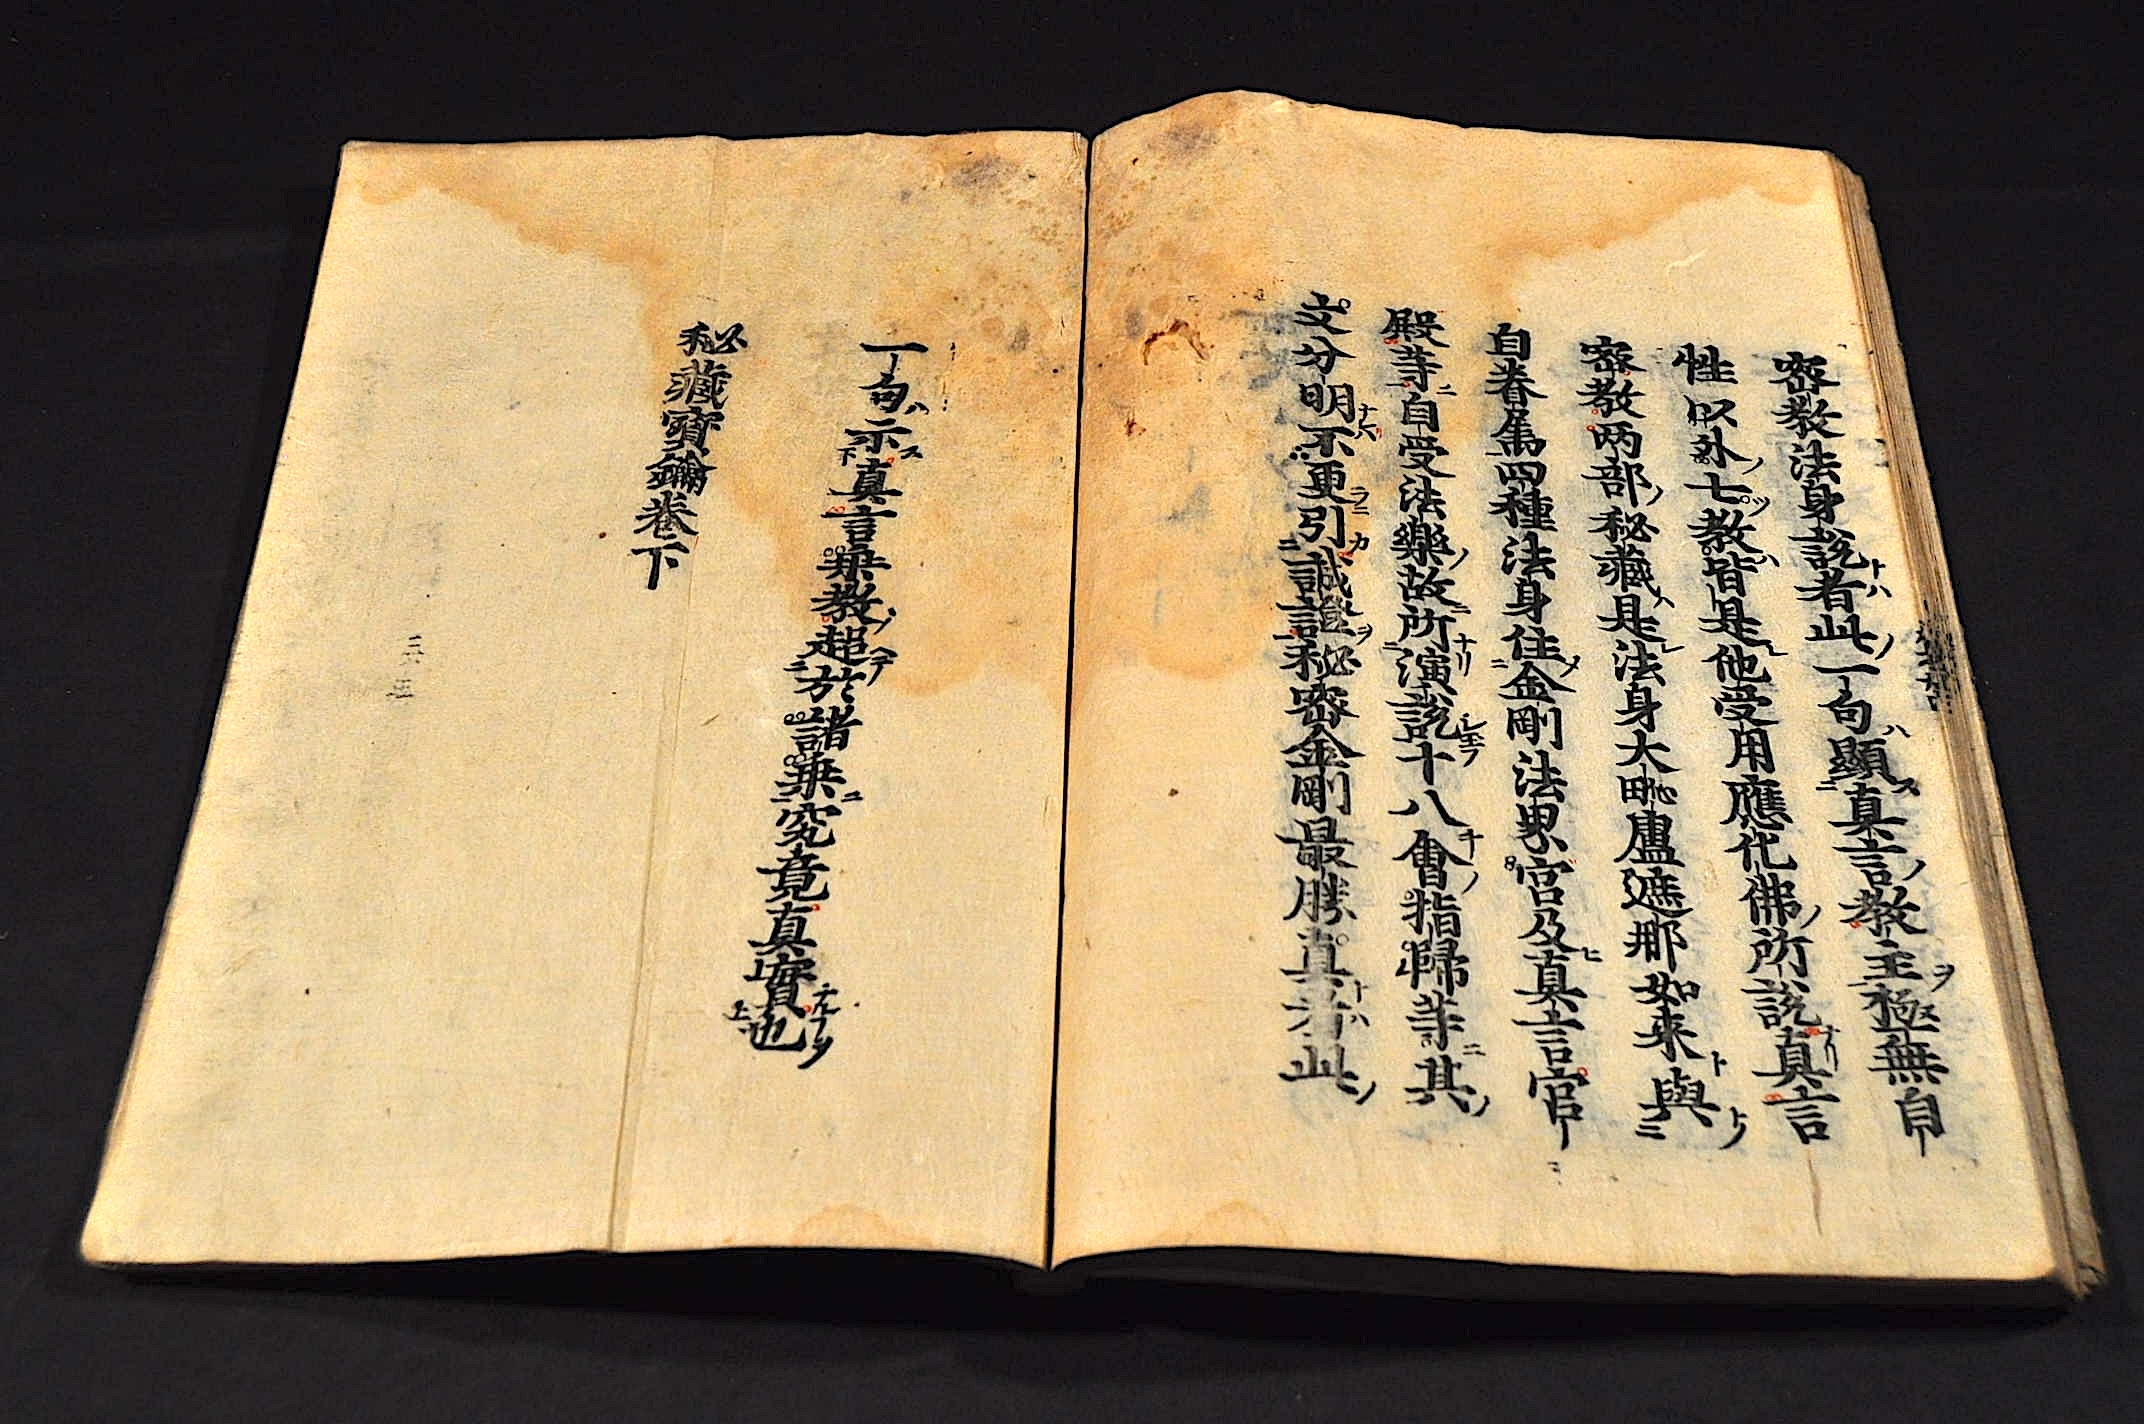 密教法身説者此一句顯真言教主極無自
性以外七教皆是他受用應化佛所説真言
密教两部秘藏是法身大毗盧遮那如来與
自眷属四種法身住金剛法界宮及真言宮
殿等自受法樂故所演説十八會指歸等其
文分明不更引誠證秘密金剛最勝真者此
一句示真言乗教超於諸乗究竟真實也
秘藏寶鑰巻下